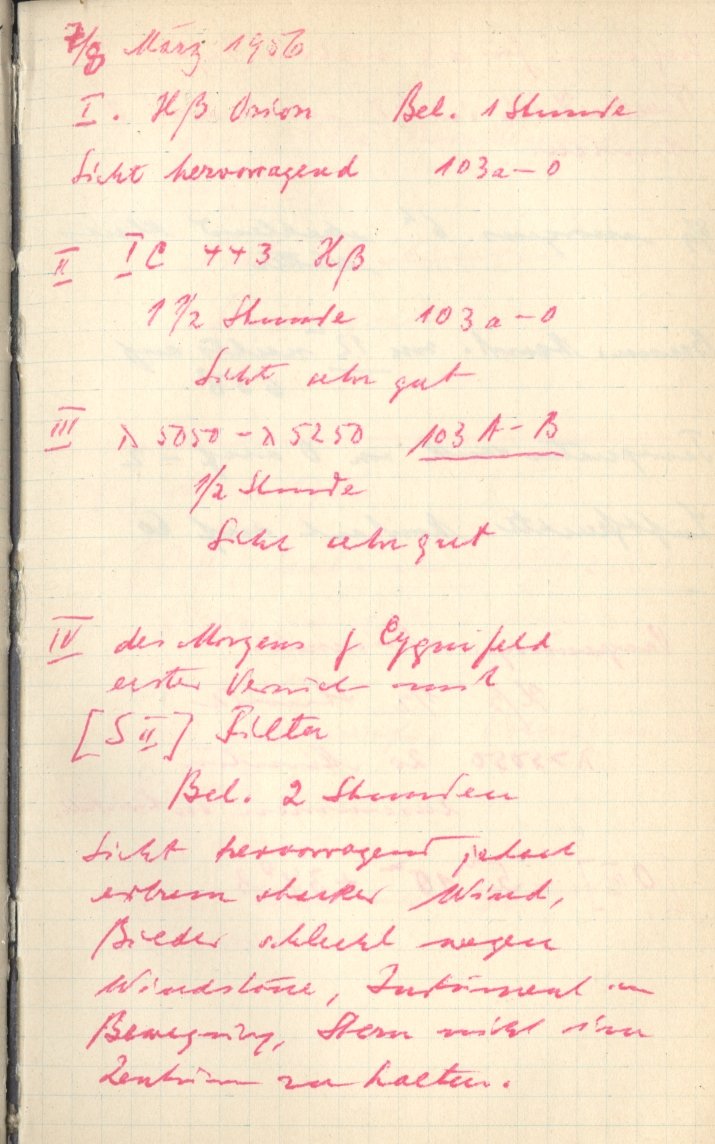 7/8 März 1956
I. Hβ Orion Bel. 1 Stunde
Sicht hervorragend 103a-O
II IC 443 Hβ
1 1/2 Stunde 103a-O
Sicht sehr gut
III λ 5050 - λ 5250 103 A-B
1/2 Stunde
Sicht sehr gut
IV des Morgens γ Cygnifeld
erster Versuch mit
[S II] Filter
Bel. 2 Stunden
Sicht hervorragend jedoch
extrem starker Wind,
Bilder schlecht wegen
Windstösse, Instrument in
Bewegung, Stern nicht im
Zentrum zu halten.